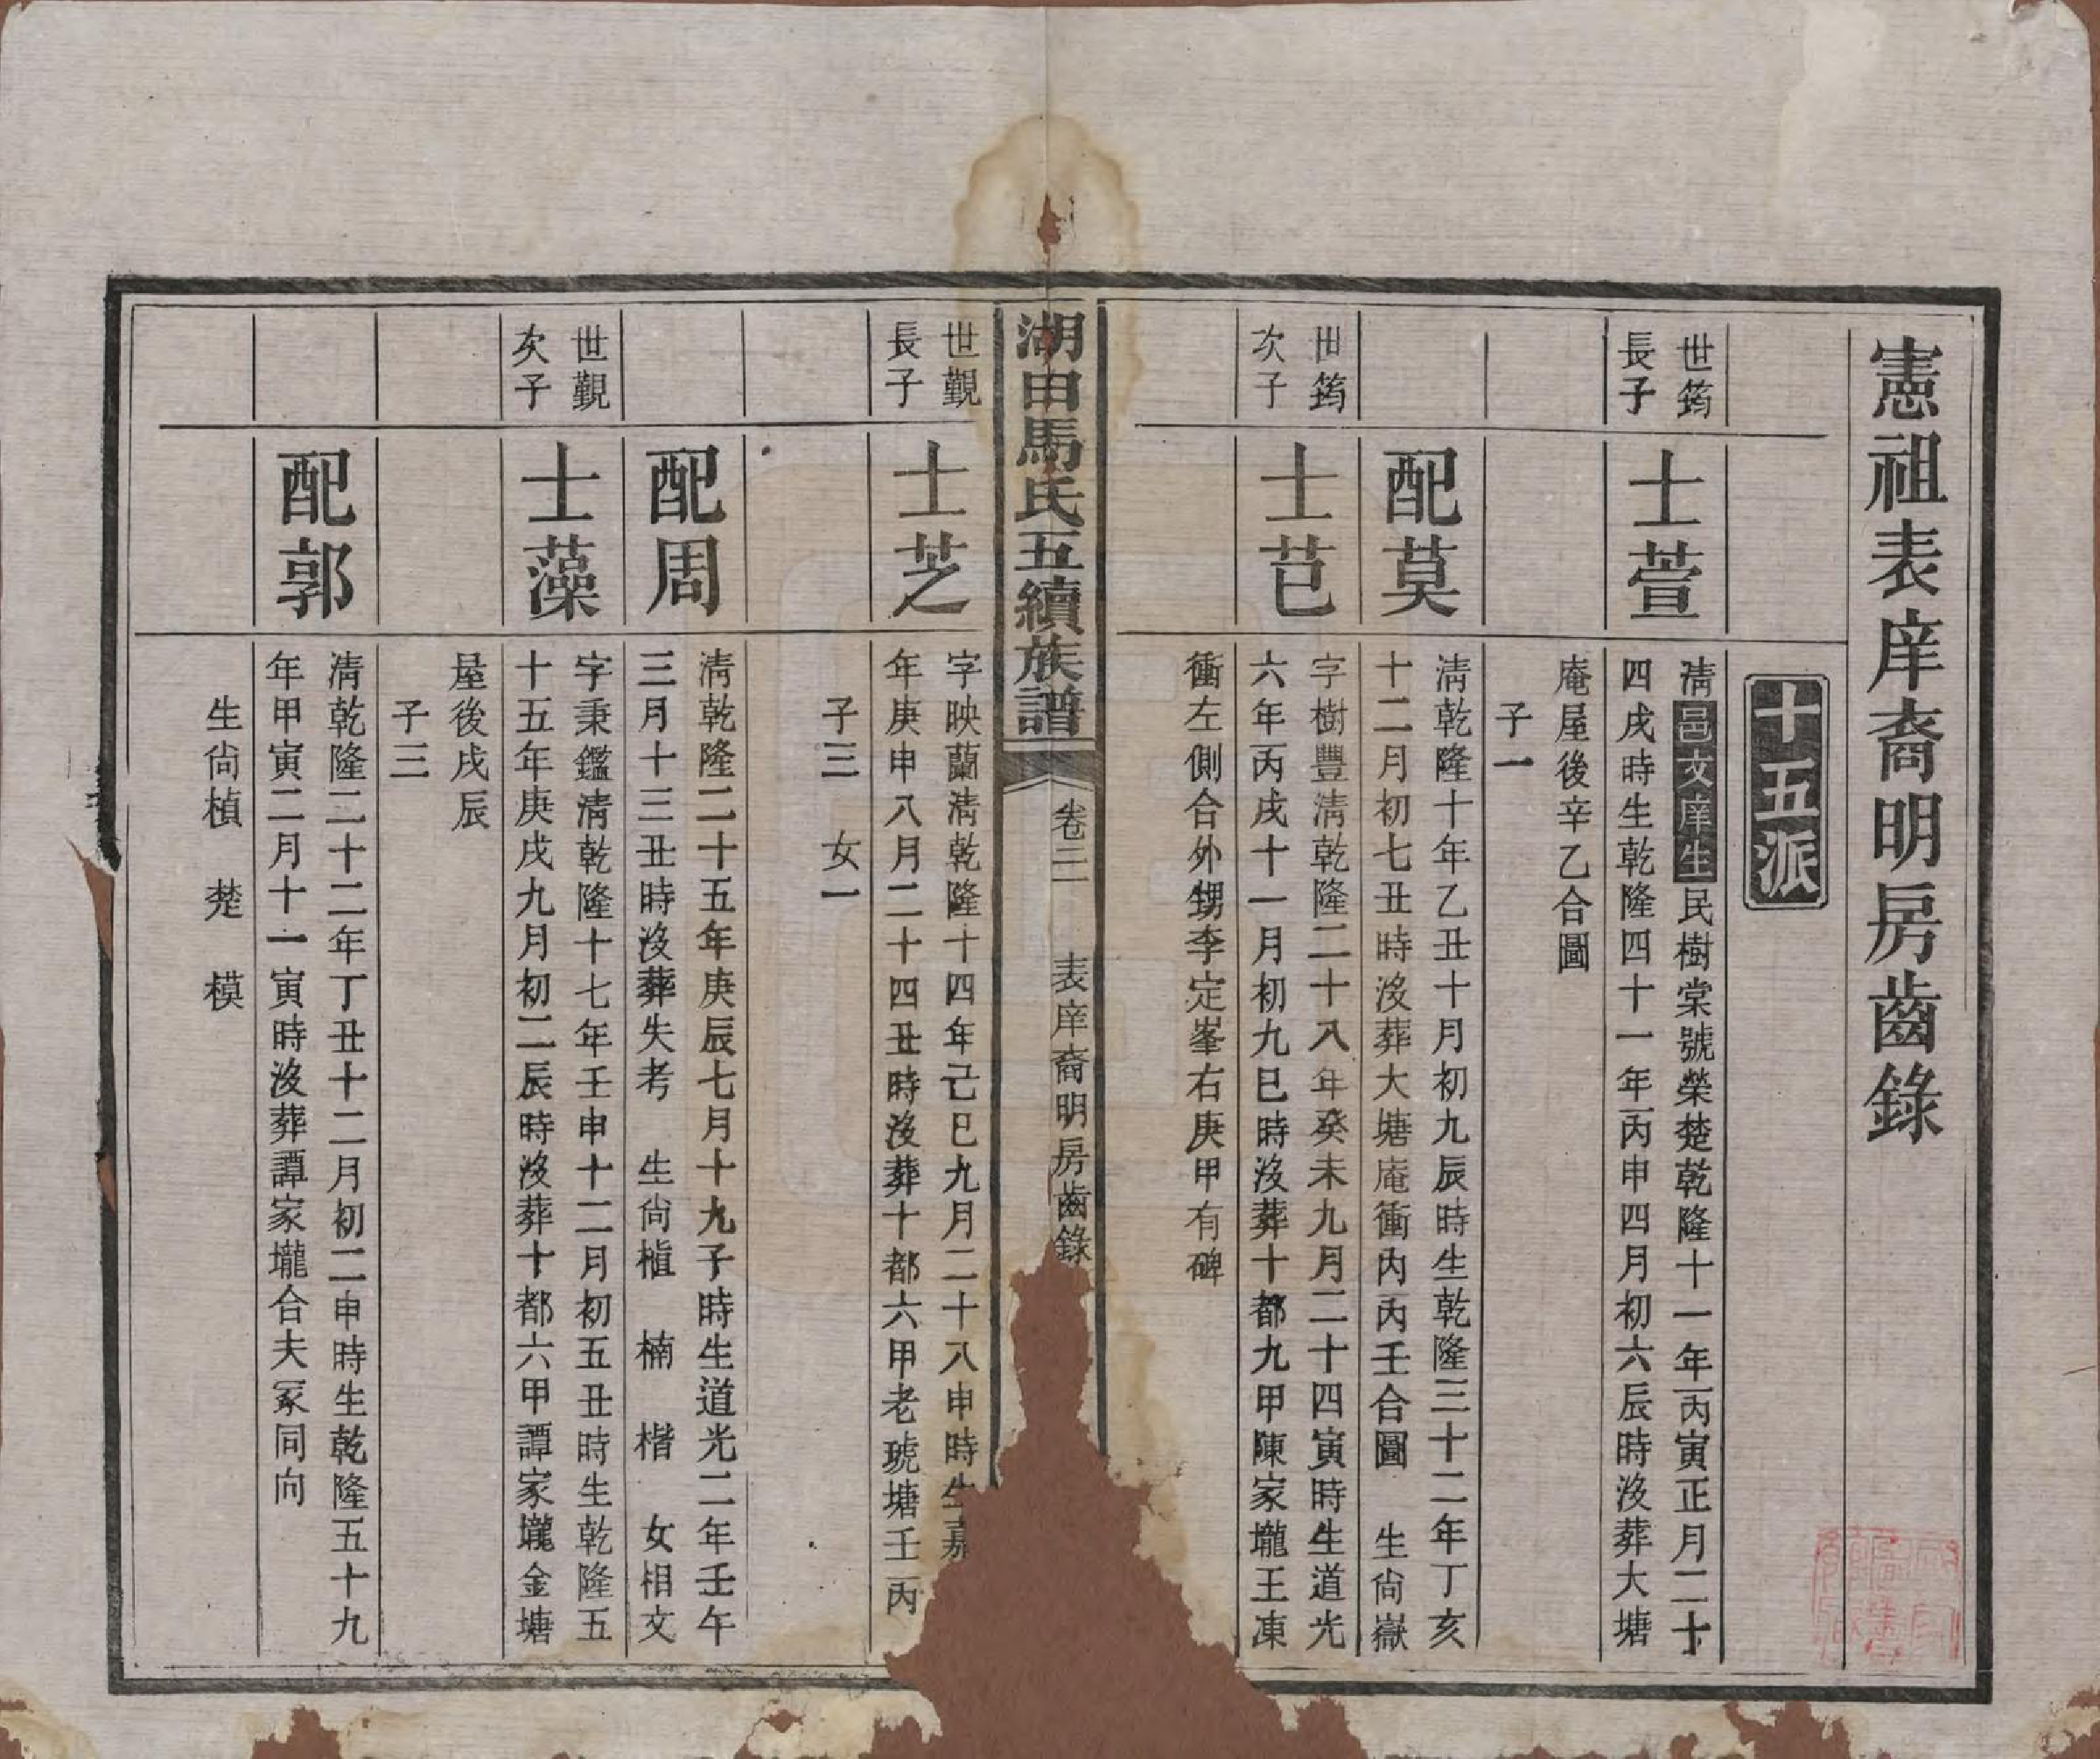 憲祖表庠裔明房齒錄
十五派
世筠
長子
士萱
清邑文庠生民樹棠號榮楚乾隆十一年丙寅正月二十
四戌時生乾隆四十一年丙申四月初六辰時沒葬大塘
庵屋後辛乙合圖
子一
配莫
清乾隆十年乙丑十月初九辰時生乾隆三十二年丁亥
十二月初七丑時沒葬大塘庵衝內丙壬合圖 生尙嶽
世筠
次子
士芑
字樹豐清乾隆二十八年癸未九月二十四寅時生道光
六年丙戌十一月初九巳時沒葬十都九甲陳家壠王涷
衝左側合外甥李定峯右庚甲有碑
湖田馬氏五續族譜
卷二
表庠裔明房齒錄
世觀
長子
士芝
字映蘭清乾隆十四年己巳九月二十八申時生嘉
年庚申八月二十四丑時沒葬十都六甲老琥塘壬丙
子三 女一
配周
清乾隆二十五年庚辰七月十九子時生道光二年壬午
三月十三丑時沒葬失考 生尙植 楠 楷 女相文
世觀
次子
士藻
字秉鑑清乾隆十七年壬申十二月初五丑時生乾隆五
十五年庚戌九月初二辰時沒葬十都六甲譚家壠金塘
屋後戌辰
子三
配郭
清乾隆二十二年丁丑十二月初二申時生乾隆五十九
年甲寅二月十一寅時沒葬譚家壠合夫冢同向
生尙楨 楚 模